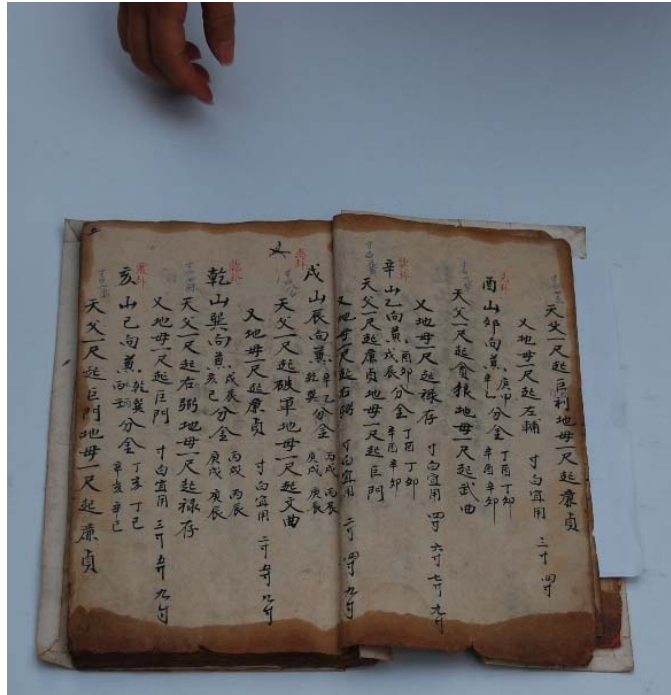 天父一尺起巨門地母一尺起廉貞
又地母一尺起左輔 寸白宜用 三寸 四寸
兑卦
酉山卯向兼 庚甲 辛乙 分金 丁酉 丁卯 辛酉 辛卯
天父一尺起貪狼地母一尺起武曲
又地母一尺起禄存 寸白宜用 四寸 六寸 七寸 九寸
辛山乙向兼 酉卯 戌辰 分金 丁酉 丁卯 辛酉 辛卯
天父一尺起廉貞地母一尺起巨門
又地母一尺起右弼 寸白宜用 二寸 四寸 九寸
戌山辰向兼 辛乙 乾巽 分金 丙戌 丙辰 庚戌 庚辰
天父一尺起破軍地母一尺起文曲
又地母一尺起廉貞 寸白宜用 二寸 五寸 九寸
乾卦
乾山巽向兼 戌辰 亥巳 分金 丙戌 丙辰 庚戌 庚辰
天父一尺起右弼地母一尺起禄存
又地母一尺起巨門 寸白宜用 三寸 五寸 九寸
震卦
亥山巳向兼 乾巽 壬丙 分金 丁亥 丁巳 辛亥 辛巳
天父一尺起巨門地母一尺起廉貞